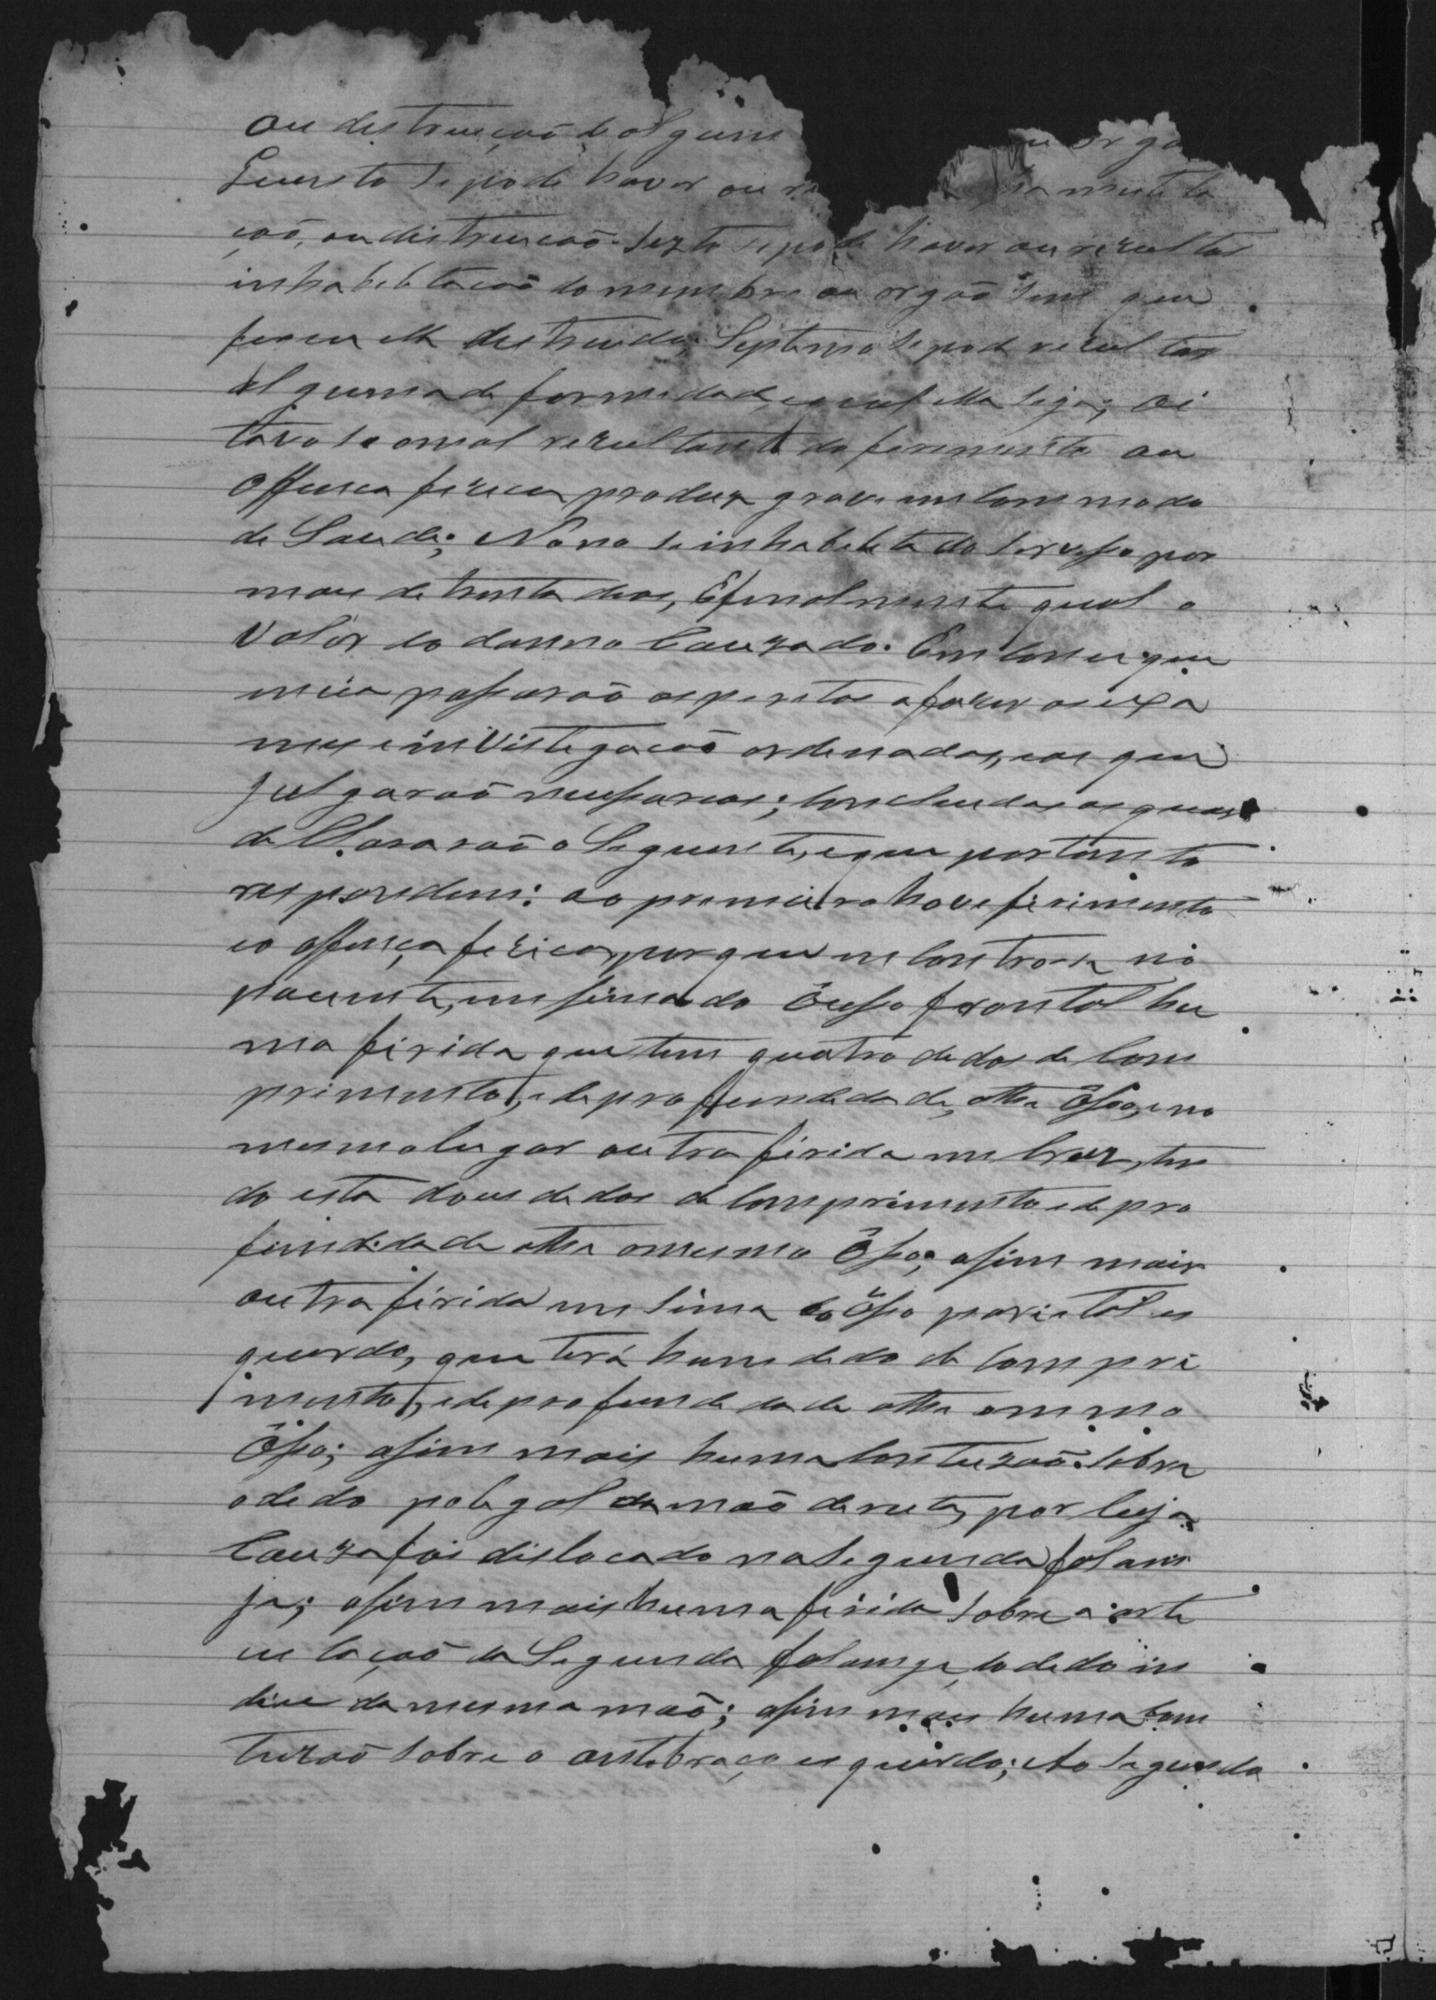 ou destruiçaõ de algum ou orga
Quinto se pode haver ou re
çaõ, ou destruicaõ. Sexto se pode haver ou rezultar
inhabelitacaõ do membro ou orgaõ sem que
fique elle destruido; Septimo se pode rezultar
alguma deformidade, e qual ella seja; Oi
tavo se o mal rezultante do ferimento ou
offença fizica produz grave incommodo
de Saude; Nono se inhabelita do servisso por
mais de trinta dias, E finalmente qual o
valor do danno Cauzado. Em consequen
cia passaraõ os peritos a fazer os exa
mes e invistegacaõ ordenadas, e as que
julgaraõ necessarias; concluidas as quaes
declararaõ o Seguinte, e que portanto
respondem: ao primeiro houve ferimento
e offença fizica, porque incontra-se no
paciente, em sima do Ousso frontal hu
ma firida que tem quatro dedos de com
primento, e de profundedade, athe Osso, e no
mesmo lugar outra firida em cruz, ten
do esta dous dedos de comprimento e de pro
fundidade athe o mesmo Osso; assim mais
outra firida em sima do Osso parietal es
querdo, que terá hum dedo de compri
mento, e de profundedade athe o mesmo
Osso; assim mais huma contuzaõ sobre
o dedo polegal da maõ dereita, por cuja
Cauza foi dislocado na segunda falan
ja; assim mais huma firida sobre a arte
culaçaõ da Segunda falange do dedo in
dice da mesma maõ; assim mais huma com
tuzaõ sobre o antebraço esquerdo; Ao Segundo